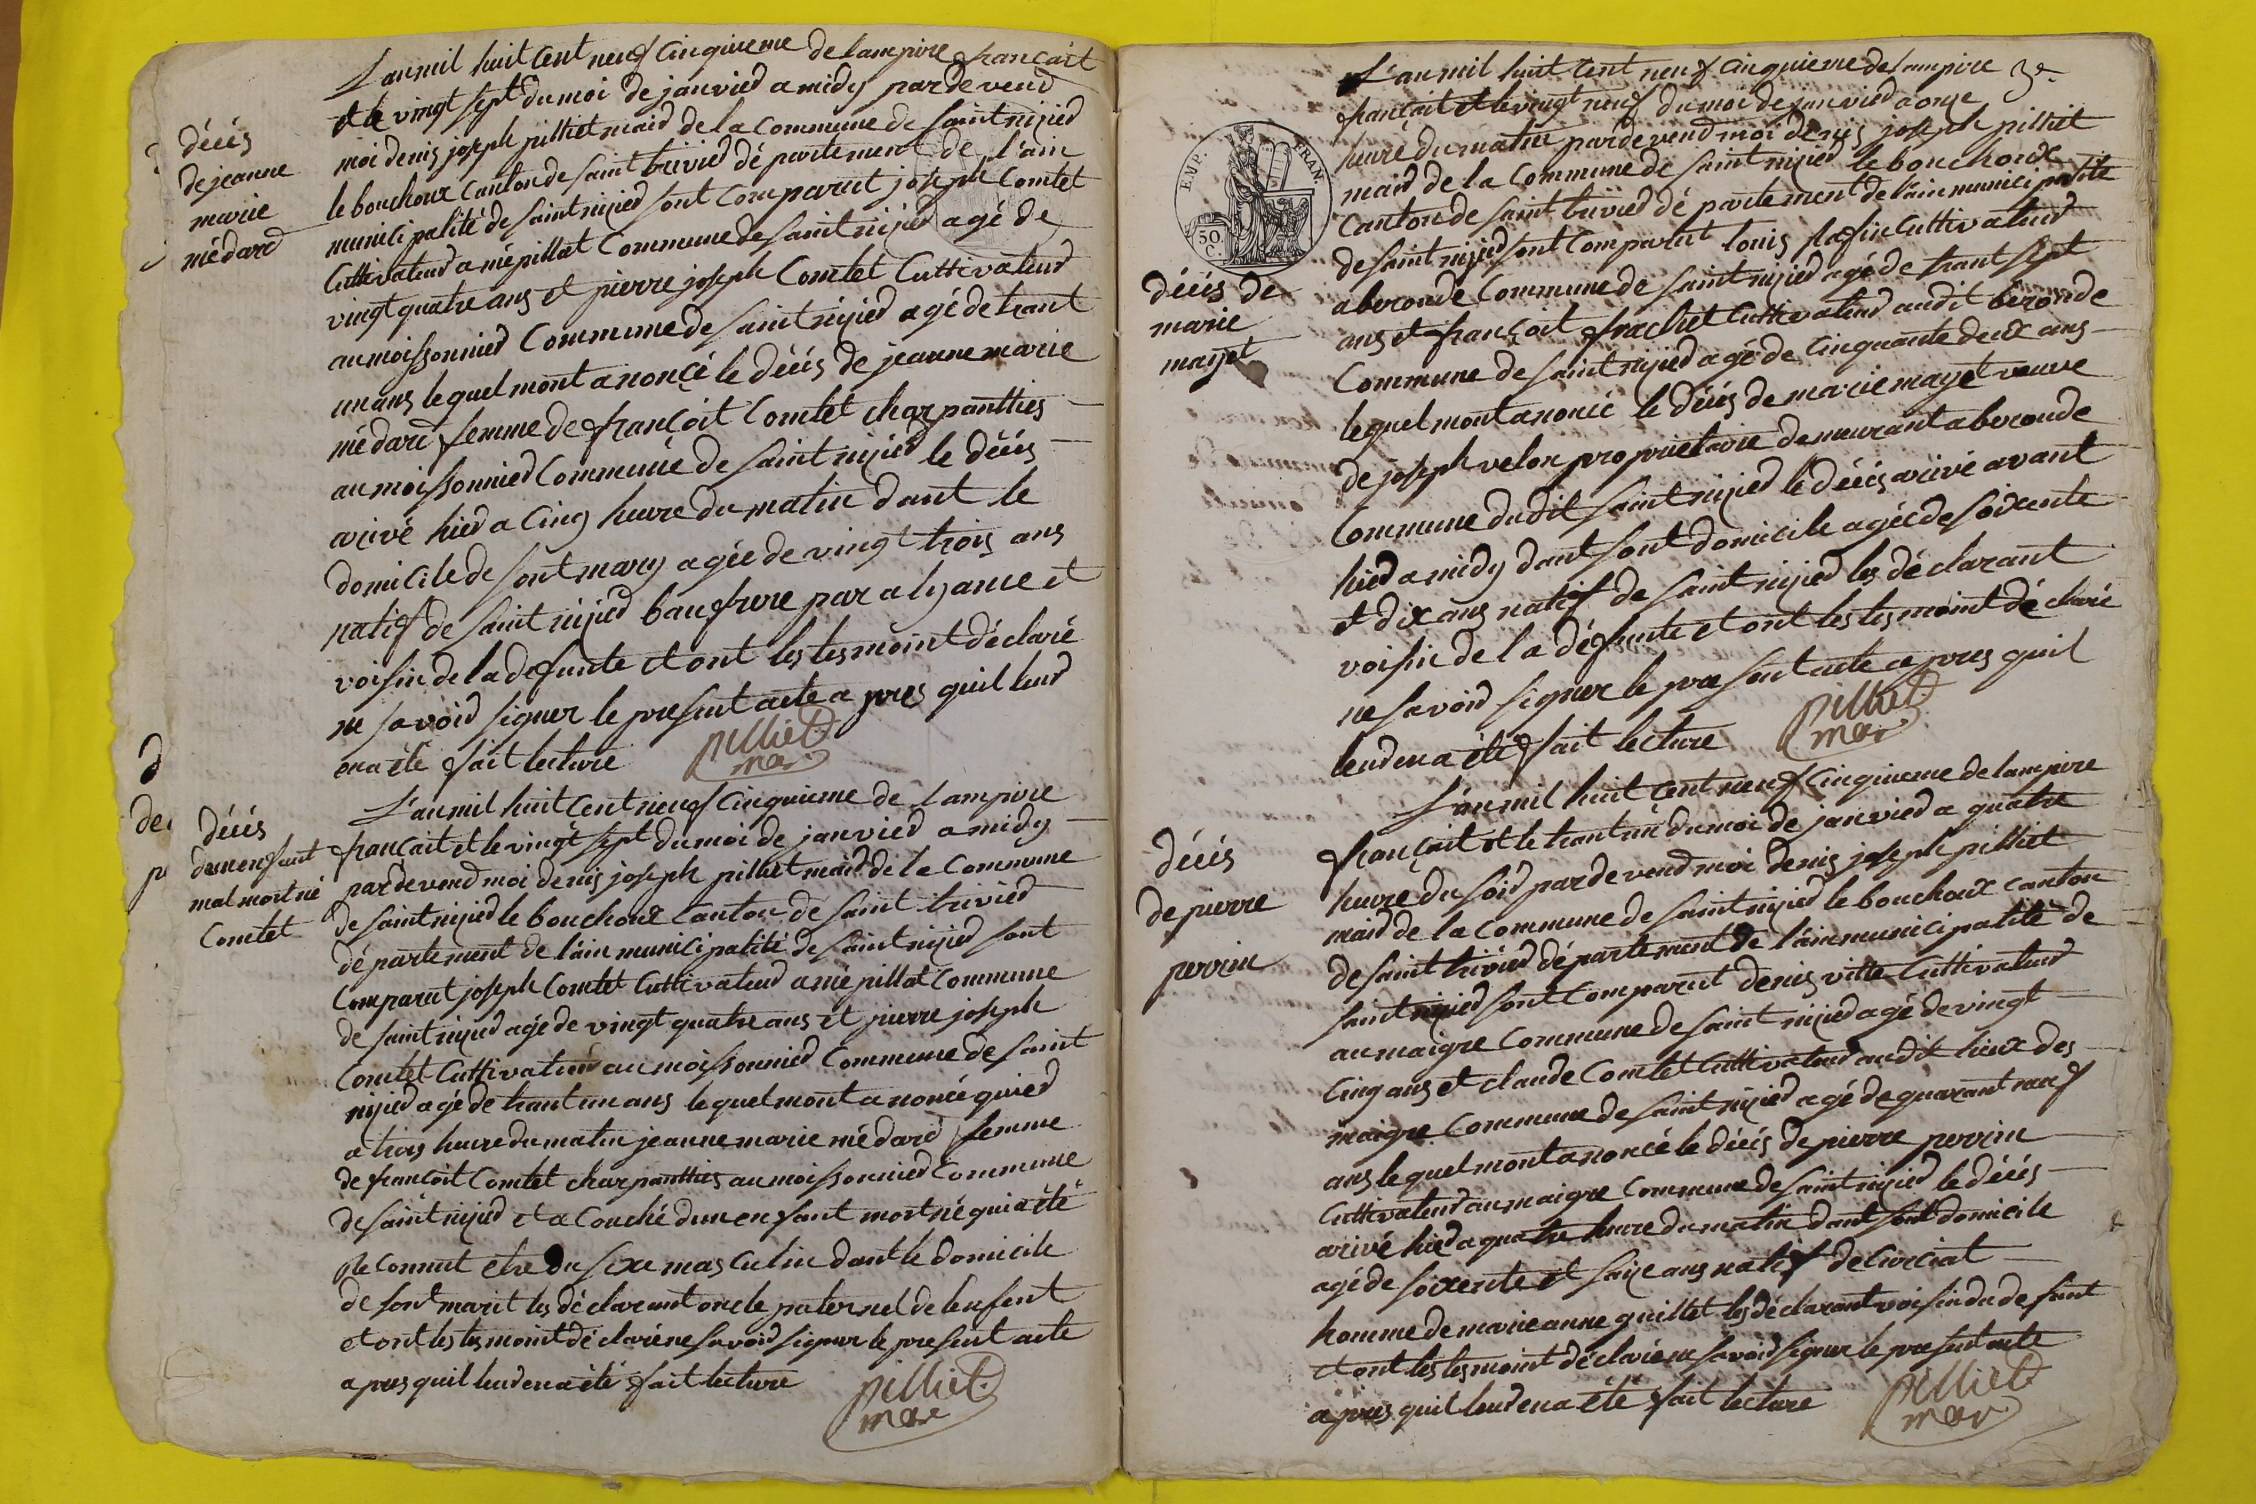 L'an mil huit cent neuf cinquieme de lampire françait
et le vingt sept du moi de janvied a midy pardevend
moi denis joseph pilliet maid de la commune de saint nizied
le bouchoux canton de saint trivied dé partement de l'ain
munici palité de saint nizied sont comparut joseph Comtet
Cuttivateud a mépillat Commune de saint nizied agé de
vingt quatre ans et pierre joseph Comtet Cuttivateud
au moissonnied Commune de saint nizied agé de trant
un ans lequel mont anoncé le décés de jeanne marie
médard femme de françoit Comtet charpantties
au moissonnied Commune de saint nizied le décés
arivé hied a cinq heure du matin dant le
domicile de sont mary agée de vingt trois ans
natif de saint nizied baufrere par alyance et
voisin de la defunte et ont les tesmoint déclaré
ne savoid signer le present acte a pres quil leud
ena été fait lecture pilliet
mar
décés
de jeanne
marie
médard
L'an mil huit cent neuf Cinquieme de lampire
françait et le vingt sept du moi de janvied a midy
pardevend moi denis joseph pilliet maid de la Commune
de saint nizied le bouchoux Canton de saint trivied
département de l'ain munici palité de saint nizied sont
Comparut joseph Comtet Cuttivateud a mépillat Commune
de saint nizied agé de vingt quatre ans et pierre joseph
Comtet Cuttivateud au moissonnied Commune de saint
nizied agé de trant un ans lequel mont anoncé quied
a trois heure du matin jeanne marie médard femme
de françoit Comtet charpantties au moissonnied Commune
de saint nizied et a Couché dun enfant mort né qui a été
Reconnut etre du sixe masculin dant le domicile
de sont marit les déclarant oncle paternel de lenfent
et ont les tesmoint déclaré ne savoid signer le present acte
a pres quil leud en a été fait lecture pilliet
mar
décés
dun enfant
mal mort né
Comtet
d
de
p
L'an mil huit cent neuf cinquieme de lempire 3e
françait et le vingt neuf du moi de janvied a onze
heure du matin pardevend moi denis joseph pilliet
maid de la Commune de saint nizied le bouchoux
Canton de saint trivied dé partement de l'ain munici palité
de saint nizied sont Comparut louis flasin Cuttivateud
a beronde Commune de saint nizied agé de trant sept
ans et françoit frachet Cuttivateud audit beronde
Commune de saint nizied agé de cinquante deux ans
lequel mont anoncé le décés de marie mayet veuve
de joseph velon proprietaire demeurant a beronde
Commune dudit saint nizied le décés arivé avant
hied a midy dant sont domicile agée de soixente
et dix ans natif de saint nizied les déclarant
voisin de la défunte et ont les tesmoint déclaré
ne savoid signer le present acte a pres quil
leud en a été fait lecture pilliet
mar
EMP. FRAN.
50.
C.
décés de
marie
mayet
L'an mil huit cent neuf Cinquieme de lampire
françait et le trant un du moi de janvied a quatre
heure du soid pardevend moi denis joseph pilliet
maid de la Commune de saint nizied le bouchoux canton
de saint trivied département de l'ain munici palité de
saint nizied sont Comparut denis vitte Cuttivateud
au maigre Commune de saint nizied agé de vingt
Cinq ans et claude Comtet Cuttivateud audit lieux des
maigre Commune de saint nizied agé de quarant neuf
ans lequel mont anoncé le décés de pierre perrin
Cuttivateud au maigre Commune de saint nizied le décés
arivé hied a quatre heure du matin dant sont domicile
agé de soixente et saize ans natif de Curciat
homme de marie anne guillet les déclarant voisin du defunt
et ont les tesmoint déclaré ne savoid signer le present acte
a pres quil leud en a été fait lecture pilliet
mar
décés
de pierre
perrin